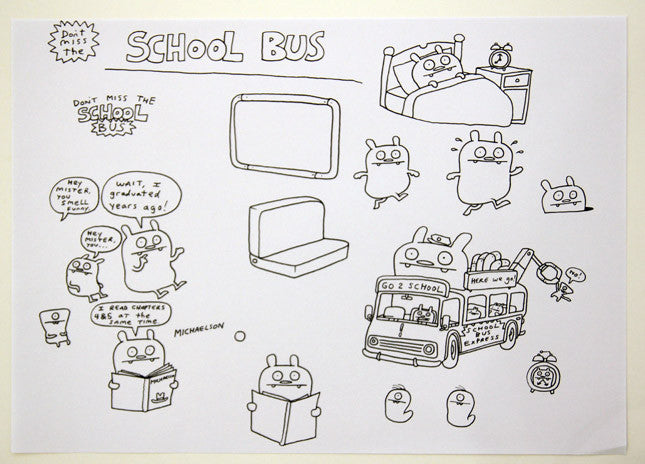 Don't
miss
the
SCHOOL BUS
DON'T MISS THE
SCHOOL
BUS
HEY
MISTER,
YOU
SMELL
FUNNY.
WAIT, I
graduated
years ago!
HEY
MISTER,
YOU...
I READ CHAPTERS
4&5 AT THE
SAME TIME
MICHAELSON
HERE WE go!
NO!
GO 2 SCHOOL
SCHOOL
BUS
EXPRESS